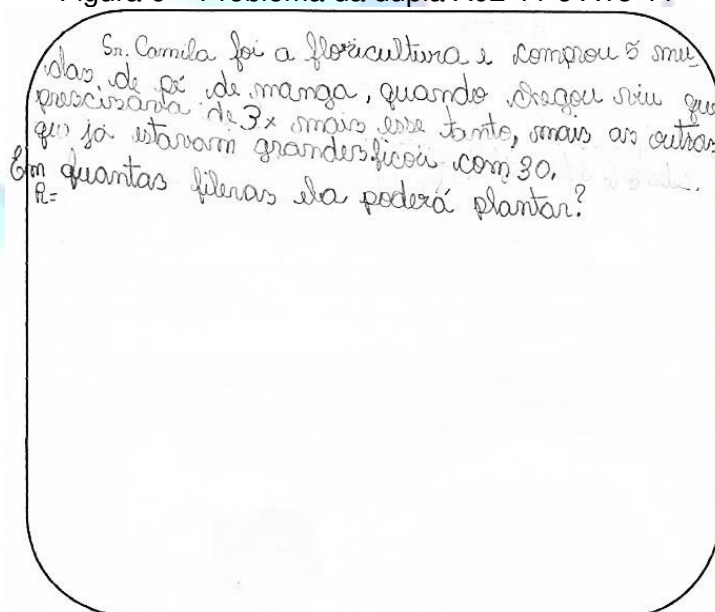 Sr. Camila foi a floricultura e comprou 5 mu
das de pé de manga, quando chegou viu que
prescisaria de 3x mais esse tanto, mais as outras
que já estavam grandes ficou com 30.
Em quantas fileras ela poderá plantar?
R=